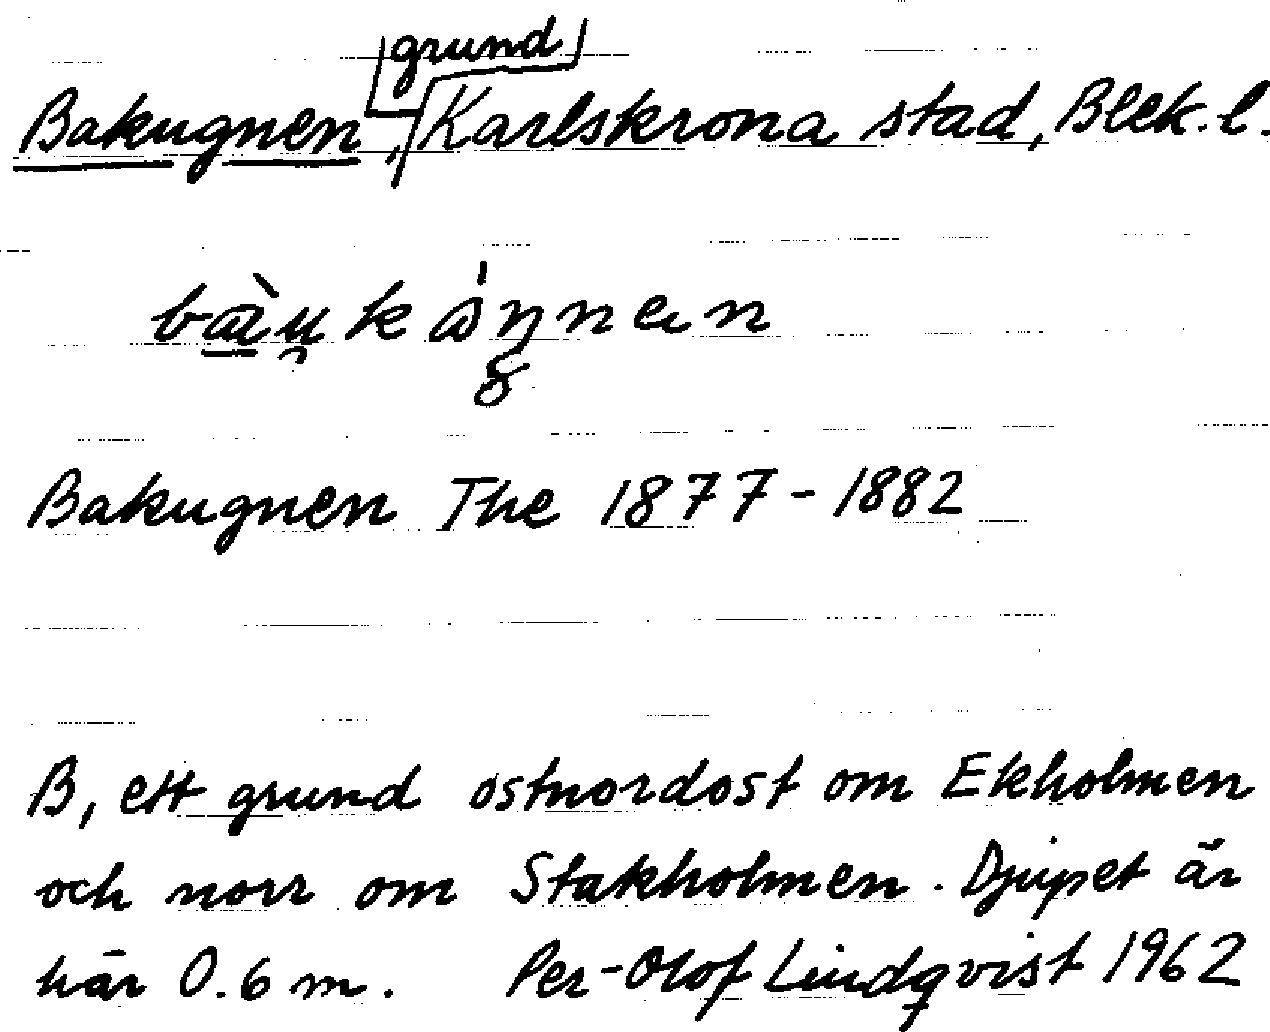 Bakugnen, grund Karlskrona stad, Blek. l.
Bakugnen The 1877-1882
B, ett grund ostnordost om Ekholmen
och norr om Stakholmen. Djupet är
här 0.6 m. Per-Olof Lindqvist 1962